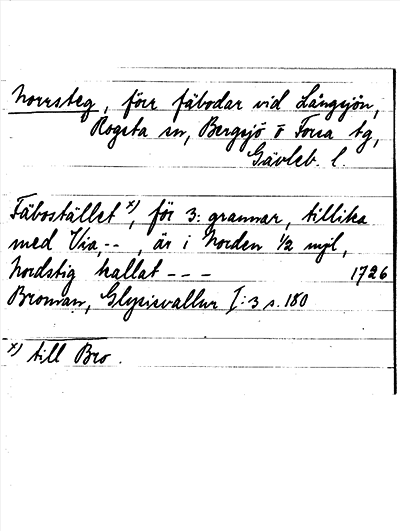 Norrsteg, förr fäbodar vid Långsjön,
Rogsta sn, Bergsjö o Forsa tg,
Gävleb. l.
Fäbostället x), för 3: grannar, tillika
med Via, -- , är i Norden ½ mjl,
Nordstig kallat - - - 1726
Broman, Glysisvallur I:3 s. 180
x) till Bro.